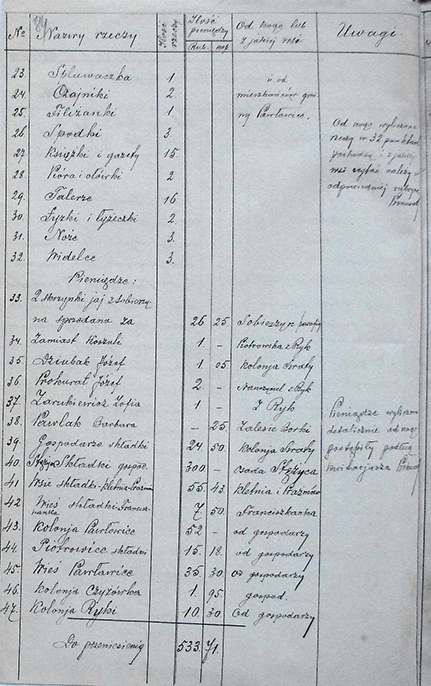 № Nazwy rzeczy Ilość rzeczy Ilość pieniędzy Od kogo lub z jakiej wsi Uwagi
Rub. kop.
23. Spluwaczka 1 i od
24 Czajniki 2 mieszkańców gmi
25. Filiżanki 1 ny Pawłowice.
26 Spodki 3
27 Książki i gazety 15
28 Pióra i ołówki 2
29. Talerze 16
30. Łyżki i łyżeczki 2
31. Noże 3.
32. Widelce 3.
Pieniędze:
33. 2 skrzynki jaj z Sobieszy-
na sprzedano za 26 25 Sobieszyn
34. Zamiast Koszuli 1 - Piotrowska z Ryk
35. Dziubak Józef 1 05 Kolonja
36 Prokurat Józef 2 - z Ryk
37 Zarukiewicz Zofia 1 - Z Ryk
38. Pawlak Barbara - 25 Zalesie
39. Gospodarze składki 24 50 Kolonja
40. Składki gospod. 300 - osada Stężyca
41 Wsie składki 55. 43 Kletnia i
42 Wieś składki 7 50
43. Kolonja Pawłowice 52 - od gospodarzy
44. Piotrowice składki 15. 18. od gospodarzy
45 Wieś Pawłowice 35. 30 Od gospodarzy
46. Kolonja 1 95. gospod.
47. Kolonja Ryki 10. 30 Od gospodarzy
Do przeniesienia 533. 71.
Od kogo
rzeczy w 32 punktach
pochodzą i z jakiej
wsi należy w
odpowiedniej
Pieniądze
detalicznie od kogo
postąpiły podług